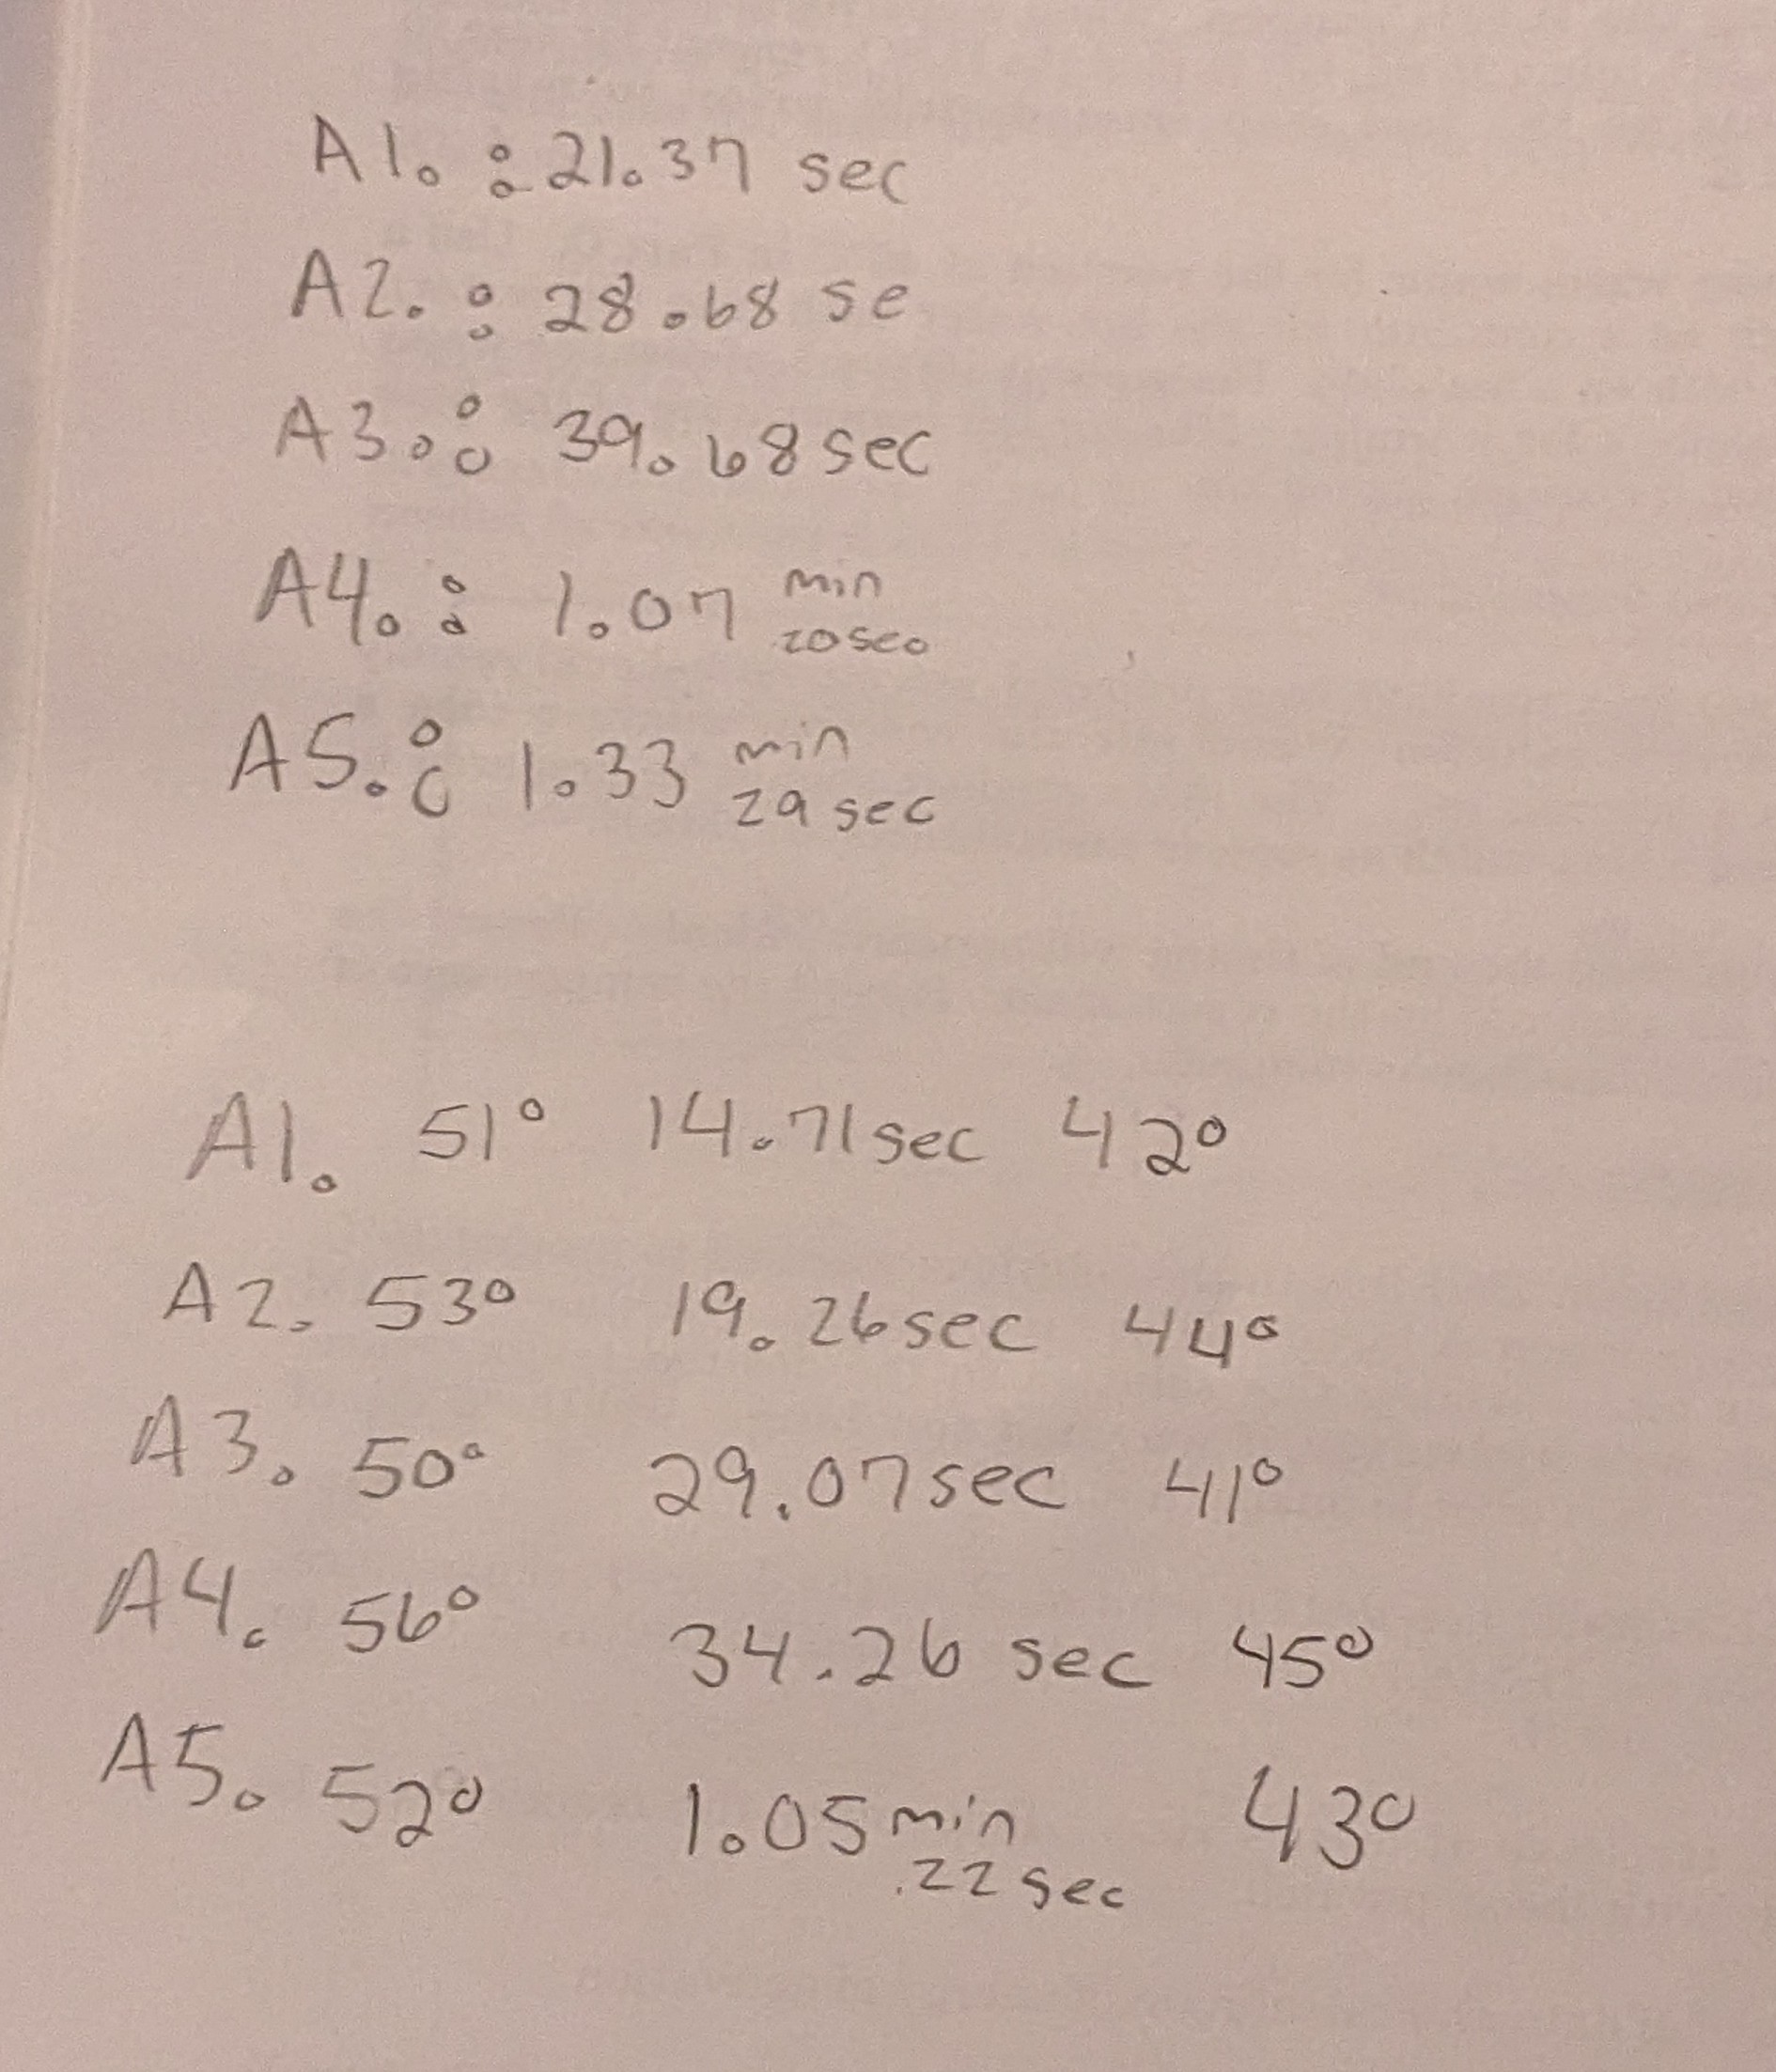 A1. : 21.37 sec
A2. : 28.68 se
A3. : 39.68 sec
A4. : 1.07 min
20 sec
A5. : 1.33 min
29 sec
A1. 51° 14.71 sec 42°
A2. 53° 19.26 sec 44°
A3. 50° 29.07 sec 41°
A4. 56° 34.26 sec 45°
A5. 52° 1.05 min 43°
.22 sec